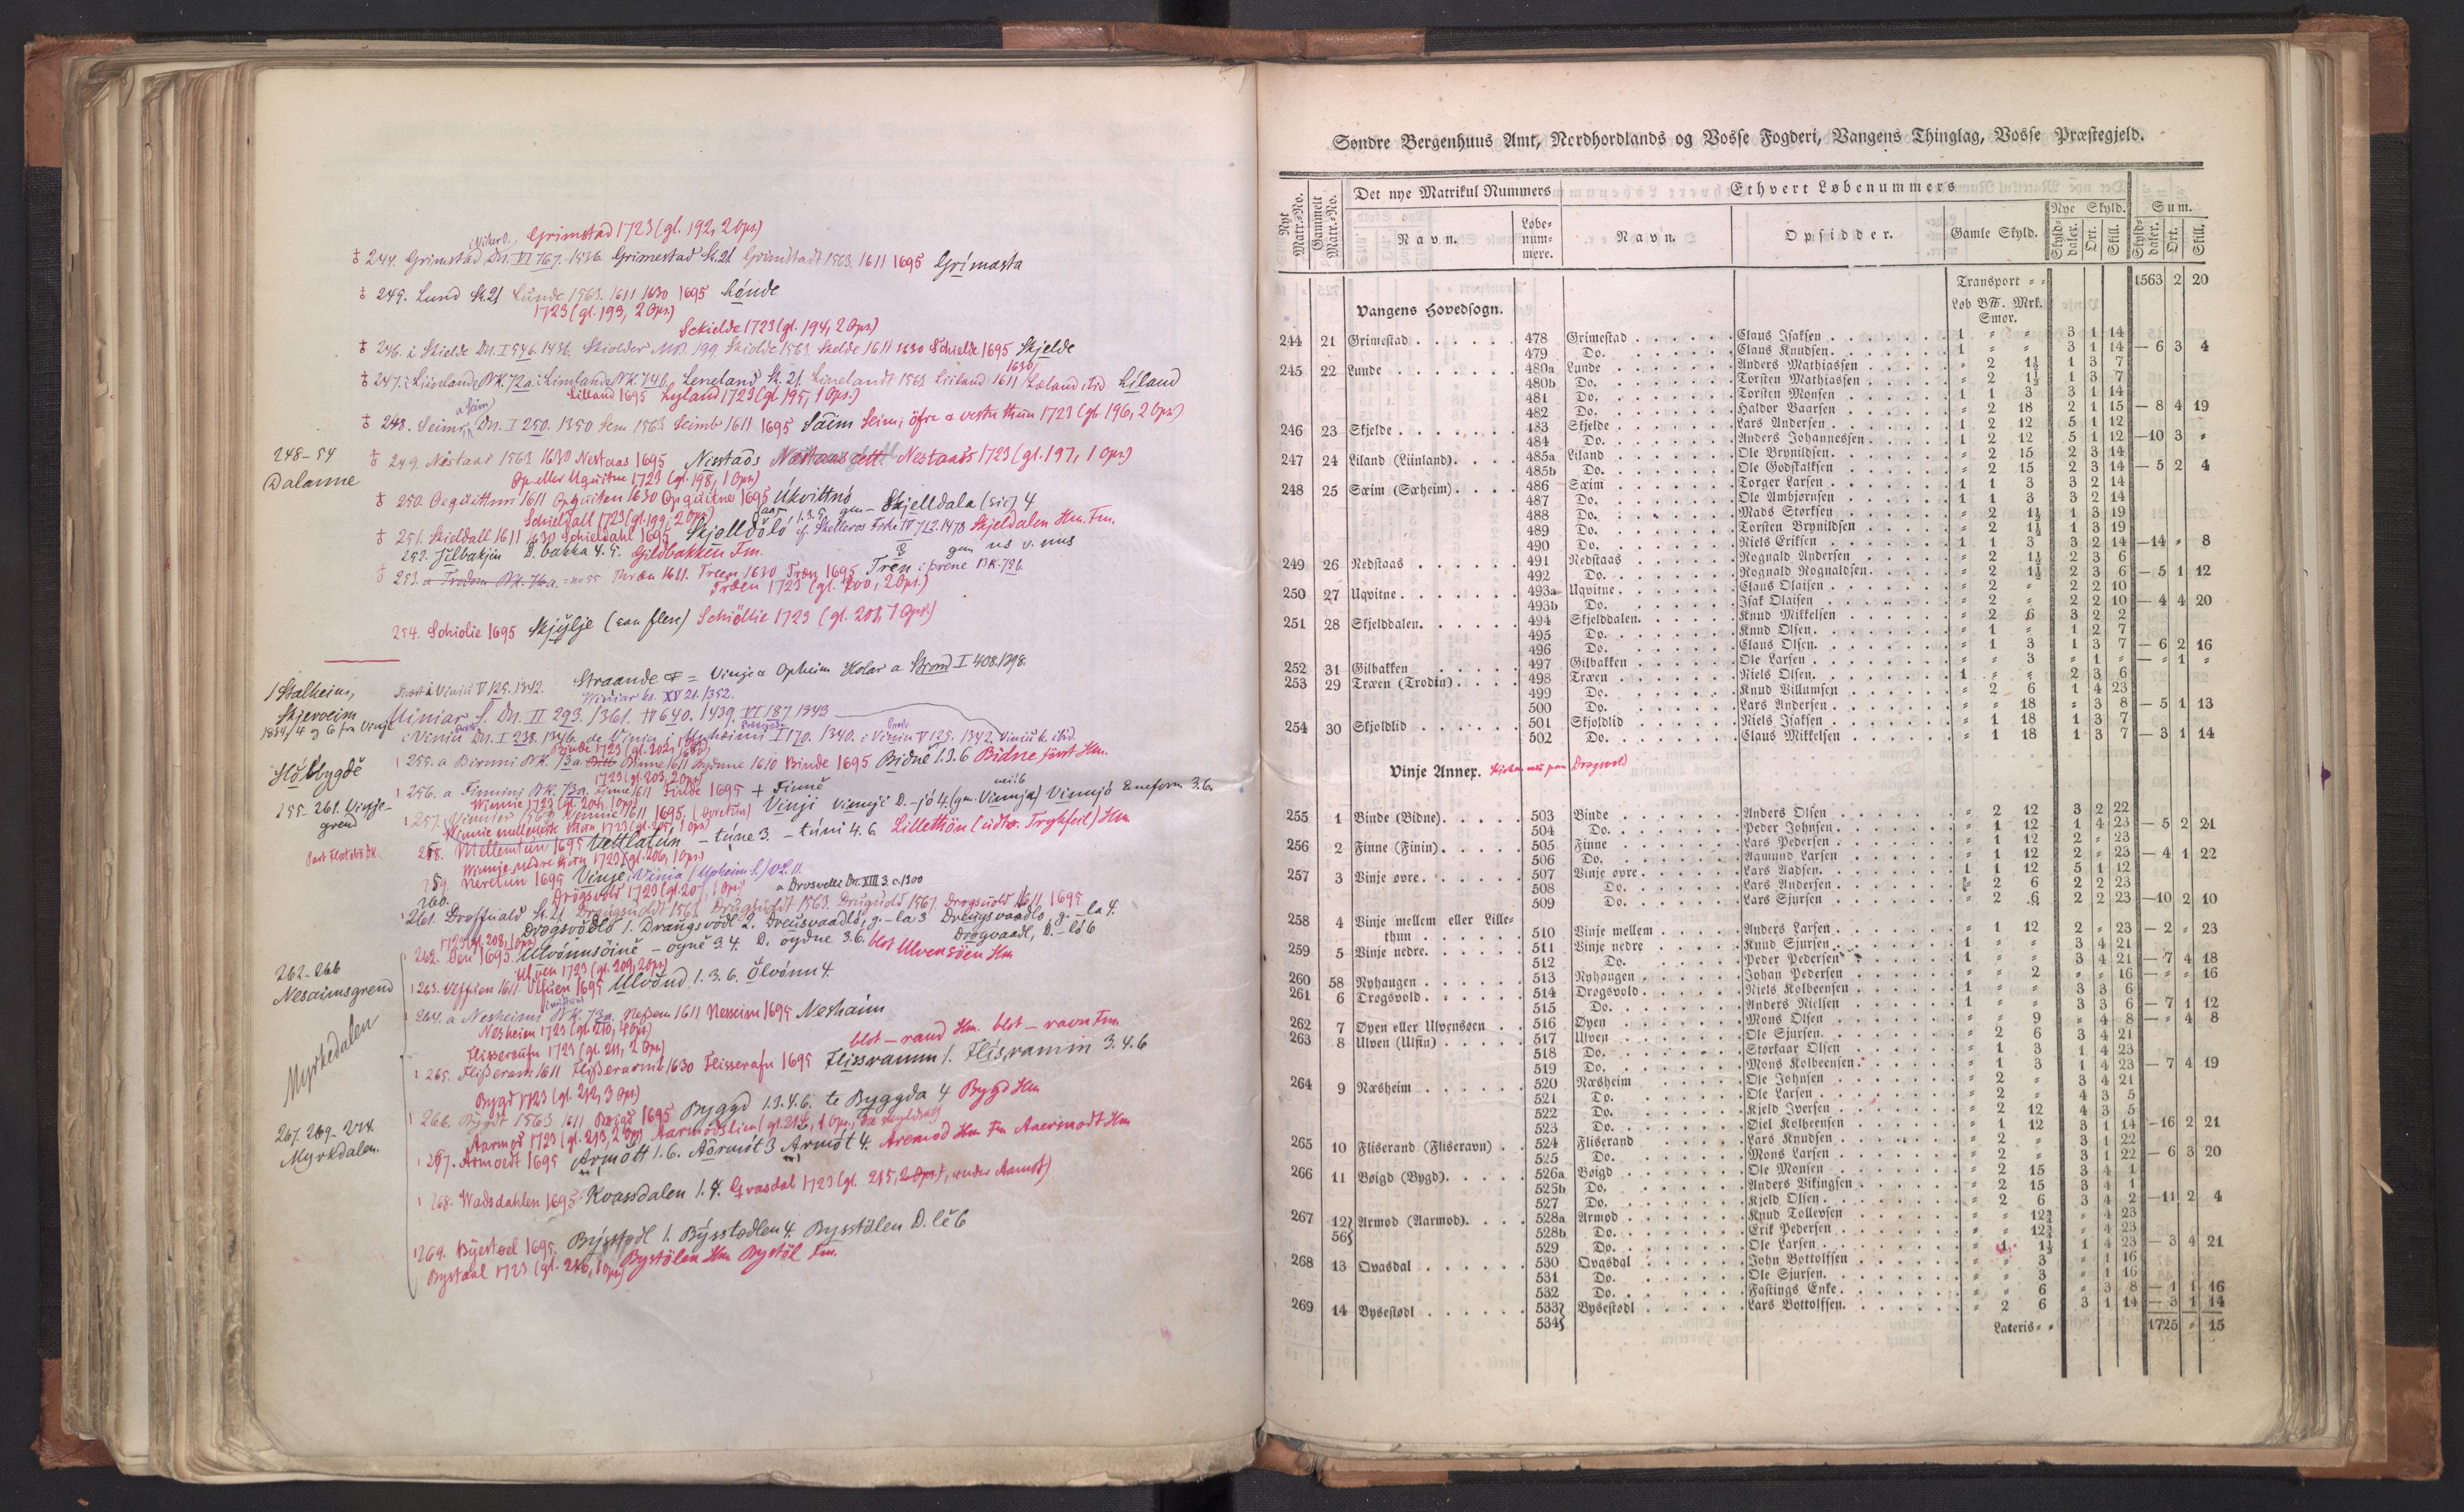 Grimstad 1723 (gl. 192, 2 Ops.)
244. Grimstad Dn. VI 767. 1536. Grimestad St. 21 Grimstadt 1563. 1611 1695 Grímasta
245. Lund St. 21 Lunde 1563. 1611 1630 1695
1723 (gl. 193, 2 Ops.)
Schielde 1723 (gl. 194, 2 Ops.)
246. i Skielde Dn. I 546. 1436. Skiolder 199 Skiolde 1563. Skelde 1611 1630 Schielde 1695 Skjelde
247. i Liinlande BK. 72a. i Linlande BK. 74b. Leneland St. 21. Linelandt 1563 Liiland 1611 Líland
Lilland 1695 Lyland 1723 (gl. 195, 1 Ops.)
248. Seimr, Dn. I 250. 1350 Sem 1563 Seimb 1611 1695 Säim Seim, öfre a vestre thun 1723 (gl. 196, 2 Ops.)
248-54
Dalanne
249. Nestaas 1563 1630 Nestaas 1695 Nestaas 1723 (gl. 197, 1 Ops.)
Op eller Uquitne 1723 (gl. 198, 1 Ops.)
250. 1611 1630 Opquitne 1695 Úkvittnó
Schieldall 1723 (gl. 199, 2 Ops.) Skjelldala (sic) 4
251. Skieldall 1611 1630 Schieldahl 1695 Skjelldålo 1478 Skjeldalen Hm. Fm.
252. Jilbakjin D. bakka 4. 5. Gildbakken Fm.
253. a Trodom BK. 76a. Thræn 1611. Treen 1630 Træn 1695 Tren i þrene BK. 75b.
Træen 1723 (gl. 200, 2 Ops.)
254. Schiolie 1695 Skjylje (aan flere) Schiöllie 1723 (gl. 201, 1 Ops.)
Straande = Vinje a Opheim Holar a Strond I 408. 1398.
1 Stalheim,
Skjerveim
1884/4 og 6 fra Vinje
a Viniu V 125. 1342.
Winiar ks. XV 21. 1352.
Uiniar S. Dn. II 293. 1361. IV 640. 1439. VI 187 1343
i Viniu Dn. I 238. 1346. I 170. 1340. i Viniu V 125. 1342.
Binde 1723 (gl. 202,
255. a Birnni BK. 73a. Binne 1611 1610 Binde 1695 Bidne 1. 3. 6 Bidne Hm.
1723 (gl. 203, 2 Ops.)
255-261. Vinje-
grend
256. a Finnini BK. 73a. Finne 1611 Finde 1695 + Finnĕ
Winnie 1723 (gl. 204, 1 Ops.)
257. Winnier 1563 Vinnie 1611 1695. Vinji
Winnie mellemste thun 1723 (gl. 205, 1 Ops.)
258. Mellemtun 1695 Vettlatún – túne 3. – túni 4. 6 Lillethön Hm
Winnie nedre thun 1723 (gl. 206, 1 Ops.)
259. Neretun 1695 Vinje
Drögsvold 1723 (gl. 207, 1 Ops.) a Drosvelli Dn. XIII 3. c. 1300
260.
261. Droffuald St. 21 Draugsuoldt 1563. Druguold 1567. Drogsuold 1611 1695
Drogsvödlo 1. Drangsvödl 2. Dreusvaadlo, g. – la 3 Dreugsvaadlo, g. – la 4.
Drogvaadl, D. – lo 6
1723 (gl. 208, 1 Ops.)
262. Øen 1695. Ulvónnsöinĕ – oynĕ 3. 4. D. öydne 3. 6. blot Ulvensöen Hm
262-266
Nesaimsgrend
Ulven 1723 (gl. 209, 2 Ops.)
263. Ulffuen 1611. Ulfuen 1695 Ulvönd 1. 3. 6. Ölvónn 4.
264. a Nesheimi BK. 73a. Neßem 1611 Nesseim 1695 Neshaim
Nesheim 1723 (gl. 210, 4 Ops.)
Myrkedalen
Flisseraufn 1723 (gl. 211, 2 Ops.) blot – rand Hm. blot – ravn Fm
265. Fliβeram 1611 Fliβeramb 1630 Flisserafn 1695 Flissramm 1. Flisramm 3. 4. 6
Bygd 1723 (gl. 212, 3 Ops.)
266. Bygdt 1563 1611 Bøigd 1695 Byggd 1. 3. 4. 6. te Byggda 4 Bygd Hm
267. 269. 274.
Myrkdalen.
Aarmod 1723 (gl. 213, 2 Ops.) Aarmodslien (gl. 214, 1 Ops.,
267. Armoedt 1695 Armótt 1. 6. Aármót 3 Armót 4. Aremod Hm Fm
268. Wadsdahlen 1695 Kvassdalen 1. 4. Qvasdal 1723 (gl. 215, 2 Ops.), under Aarmod)
269. Byestoel 1695. Býsstødl 1. Býsstodlen 4. Bysstölen D. lĕ 6
Bystaal 1723 (gl. 216, 1 Ops.) Bystölen Hm Bystöl Fm.
Søndre Bergenhuus Amt, Nordhordlands og Vosse Fogderi, Vangens Thinglag, Vosse Præstegjeld.
Nyt Matr.-No. Gammelt Matr.-No. Det nye Matrikul Nummers Ethvert Løbenummers
Navn. Løbenummere. Navn. Opsidder. Gamle Skyld. Nye Skyld. Sum.
Skylddaler. Ort. Skill. Skylddaler. Ort. Skill.
Transport 1563 2 20
Vangens Hovedsogn. Løb B℔. Mrk. Smør.
244 21 Grimestad 478 Grimestad Claus Isaksen 1 " " 3 1 14
479 Do. Claus Knudsen 1 " " 3 1 14 — 6 3 4
245 22 Lunde 480a Lunde Anders Mathiassen " 2 1½ 1 3 7
480b Do. Torsten Mathiassen " 2 1½ 1 3 7
481 Do. Torsten Monsen 1 1 3 3 1 14
482 Do. Haldor Baarsen " 2 18 2 1 15 — 8 4 19
246 23 Skjelde 483 Skjelde Lars Andersen 1 2 12 5 1 12
484 Do. Anders Johannessen 1 2 12 5 1 12 — 10 3 "
247 24 Liland (Liinland) 485a Liland Ole Brynildsen " 2 15 2 3 14
485b Do. Ole Godskalksen " 2 15 2 3 14 — 5 2 4
248 25 Sæim (Sæheim) 486 Sæim Torger Larsen 1 1 3 3 2 14
487 Do. Ole Ambjørnsen 1 1 3 3 2 14
488 Do. Mads Storksen " 2 1½ 1 3 19
489 Do. Torsten Brynildsen " 2 1½ 1 3 19
490 Do. Niels Eriksen 1 1 3 3 2 14 — 14 " 8
249 26 Nedstaas 491 Nedstaas Rognald Andersen " 2 1½ 2 3 6
492 Do. Rognald Rognaldsen " 2 1½ 2 3 6 — 5 1 12
250 27 Uqvitne 493a Uqvitne Claus Olaisen " 2 " 2 2 10
493b Do. Isak Olaisen " 2 " 2 2 10 — 4 4 20
251 28 Skjelddalen 494 Skjelddalen Knud Mikkelsen " 2 6 3 2 2
495 Do. Knud Olsen " 1 " 1 2 7
496 Do. Claus Olsen " 1 3 1 3 7 — 6 2 16
252 31 Gilbakken 497 Gilbakken Ole Larsen " " 3 " 1 " — " 1 "
253 29 Træen (Trodin) 498 Træen Niels Olsen 1 " " 2 3 6
499 Do. Knud Villumsen " 2 6 1 4 23
500 Do. Lars Andersen " " 18 " 3 8 — 5 1 13
254 30 Skjoldlid 501 Skjoldlid Niels Isaksen " 1 18 1 3 7
502 Do. Claus Mikkelsen " 1 18 1 3 7 — 3 1 14
Vinje Annex. Kirken nu paa Drogsvold
255 1 Binde (Bidne) 503 Binde Anders Olsen " 2 12 3 2 22
504 Do. Peder Johnsen " 1 12 1 4 23 — 5 2 21
256 2 Finne (Finin) 505 Finne Lars Pedersen " 1 12 2 " 23
506 Do. Aamund Larsen " 1 12 2 " 23 — 4 1 22
257 3 Vinje øvre 507 Vinje øvre Lars Aadsen 1 1 12 5 1 12
508 Do. Lars Andersen " 2 6 2 2 23
509 Do. Lars Sjursen " 2 6 2 2 23 — 10 2 10
258 4 Vinje mellem eller Lille-
thun 510 Vinje mellem Anders Larsen " 1 12 2 " 23 — 2 " 23
259 5 Vinje nedre 511 Vinje nedre Knud Sjursen 1 " " 3 4 21
512 Do. Peder Pedersen 1 " " 3 4 21 — 7 4 18
260 58 Nyhaugen 513 Nyhaugen Johan Pedersen " " 2 " " 16 — " " 16
261 6 Drogsvold 514 Drogsvold Niels Kolbeensen 1 " " 3 3 6
515 Do. Anders Nielsen 1 " " 3 3 6 — 7 1 12
262 7 Øyen eller Ulvensøen 516 Øyen Mons Olsen " " 9 " 4 8 — " 4 8
263 8 Ulven (Ulfin) 517 Ulven Ole Sjursen " 2 6 3 4 21
518 Do. Storkaar Olsen " 1 3 1 4 23
519 Do. Mons Kolbeensen " 1 3 1 4 23 — 7 4 19
264 9 Næsheim 520 Næsheim Ole Johnsen " 2 " 3 4 21
521 Do. Ole Larsen " 2 " 4 3 5
522 Do. Kjeld Iversen " 2 12 4 3 5
523 Do. Diel Kolbeensen " 1 12 3 1 14 — 16 2 21
265 10 Fliserand (Fliseravn) 524 Fliserand Lars Knudsen " 2 " 3 1 22
525 Do. Mons Larsen " 2 " 3 1 22 — 6 3 20
266 11 Bøigd (Bygd) 526a Bøigd Ole Monsen " 2 15 3 4 1
525b Do. Anders Vikingsen " 2 15 3 4 1
527 Do. Kjeld Olsen " 2 6 3 4 2 — 11 2 4
267 12 56 Armod (Aarmod) 528a Armod Knud Tollevsen " " 12¾ " 4 23
528b Do. Erik Pedersen " " 12¾ " 4 23
529 Do. Ole Larsen " 1 1½ 1 4 23 — 3 4 21
268 13 Qvasdal 530 Qvasdal John Bottolfsen " " 3 " 1 16
531 Do. Ole Sjursen " " 3 " 1 16
532 Do. Fastings Enke " " 6 " 3 8 — 1 1 16
269 14 Bysestødl 533 Bysestødl Lars Bottolfsen " 2 6 3 1 14 — 3 1 14
534
Lateris 1725 " 15